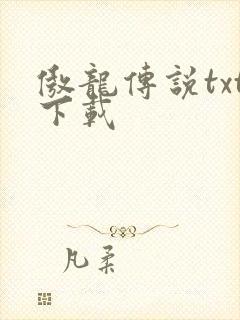 傲龍傳説txt
下載
凡柔